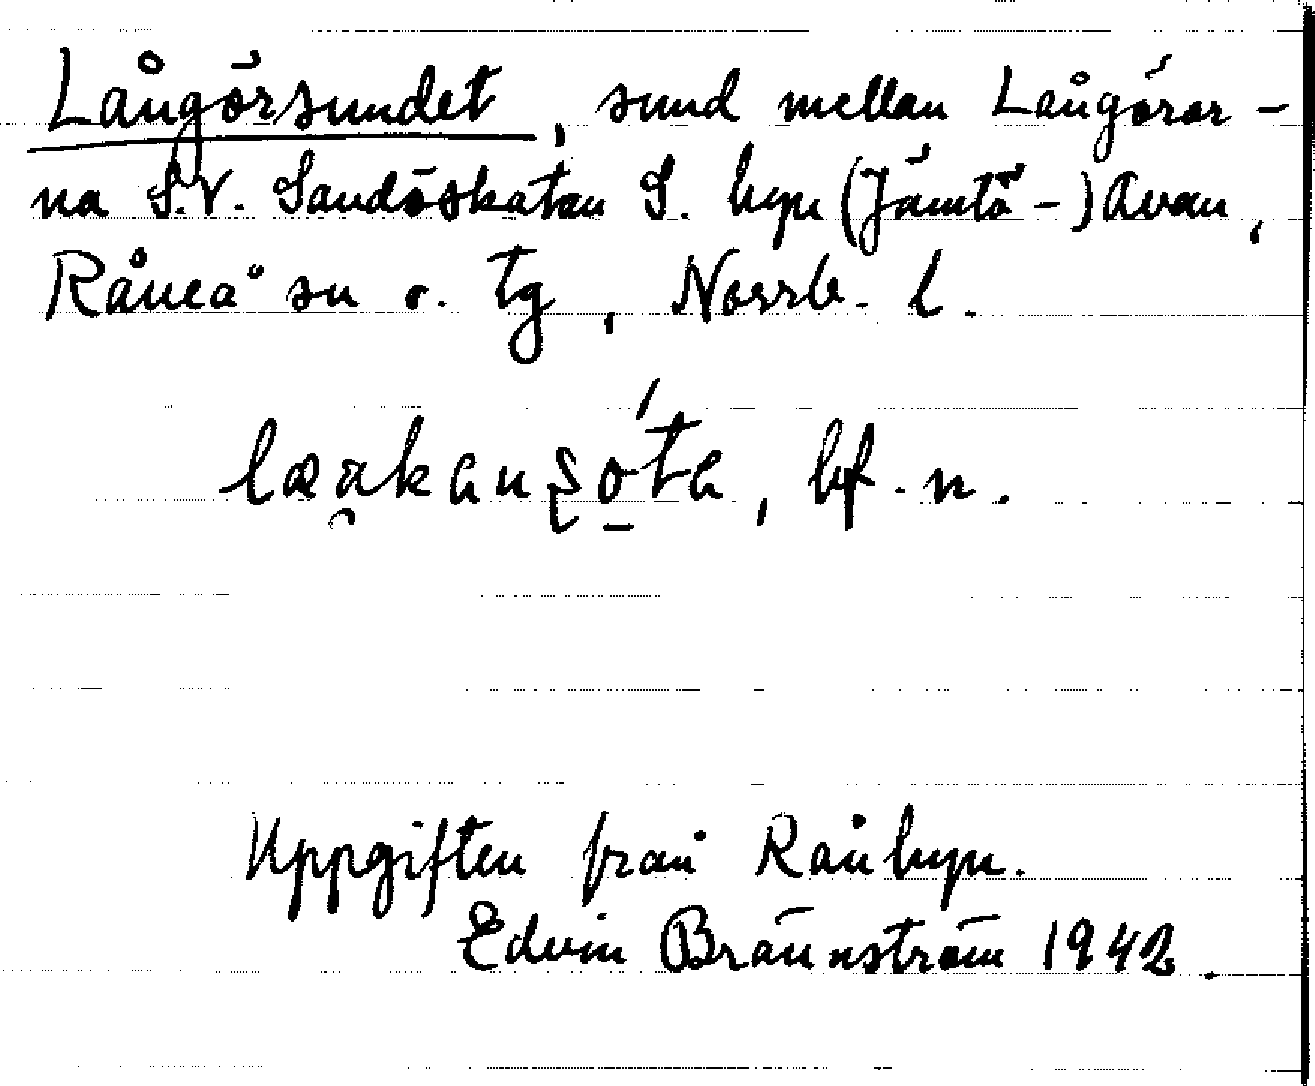 Långörsundet, sund mellan Långörar-
na S.V. Sandöskatan S. byn (Jämtö-) Avan,
Råneå sn o. tg, Norrb. l.
bf. n.
Uppgiften från Rånbyn.
Edvin Brännström 1942.